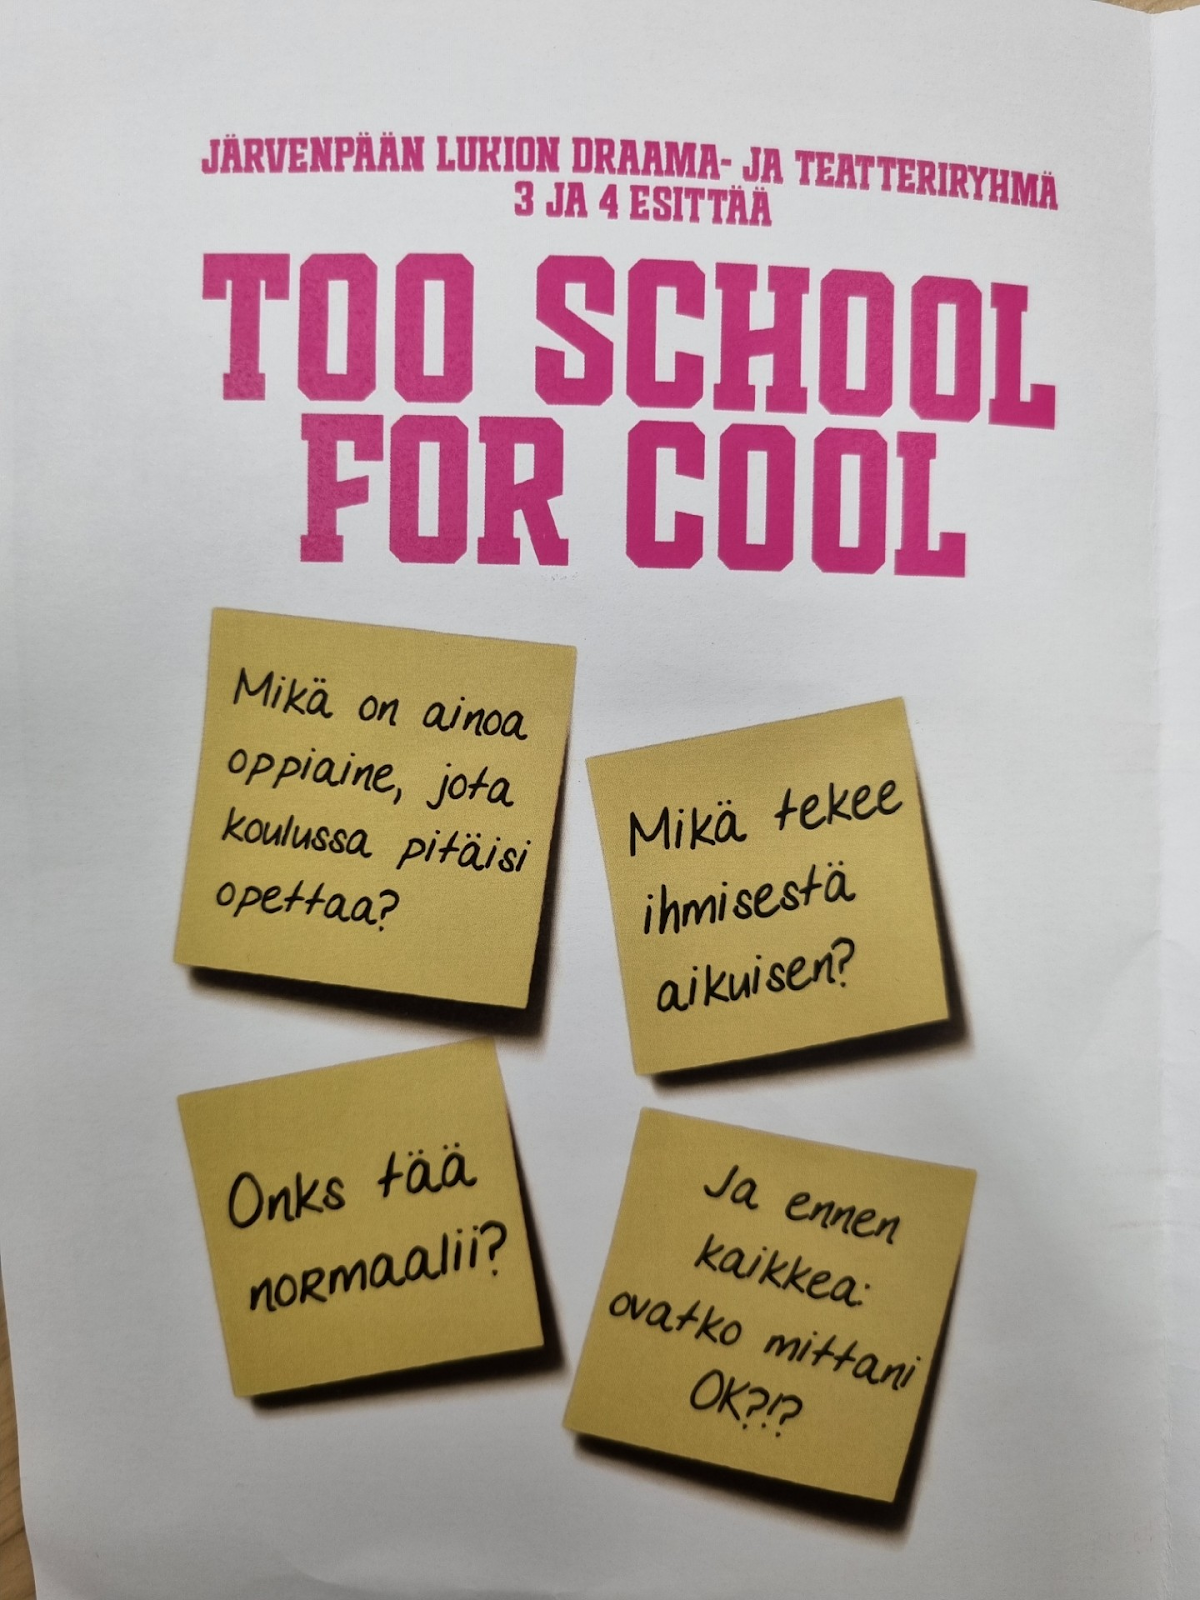 JÄRVENPÄÄN LUKION DRAAMA- JA TEATTERIRYHMÄ
3 JA 4 ESITTÄÄ
TOO SCHOOL
FOR COOL
Mikä on ainoa
oppiaine, jota
koulussa pitäisi
opettaa?
Mikä tekee
ihmisestä
aikuisen?
Onks tää
normaalii?
Ja ennen
kaikkea:
ovatko mittani
OK?!?